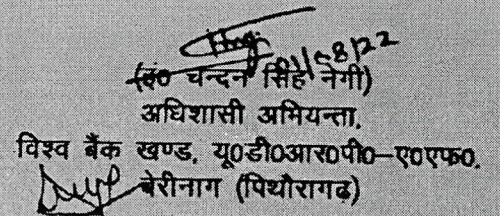 /08/22
(इं० चन्दन सिंह नेगी)
अधिशासी अभियन्ता,
विश्व बैंक खण्ड, यू०डी०आर०पी०–ए०एफ०,
बेरीनाग (पिथौरागढ़)